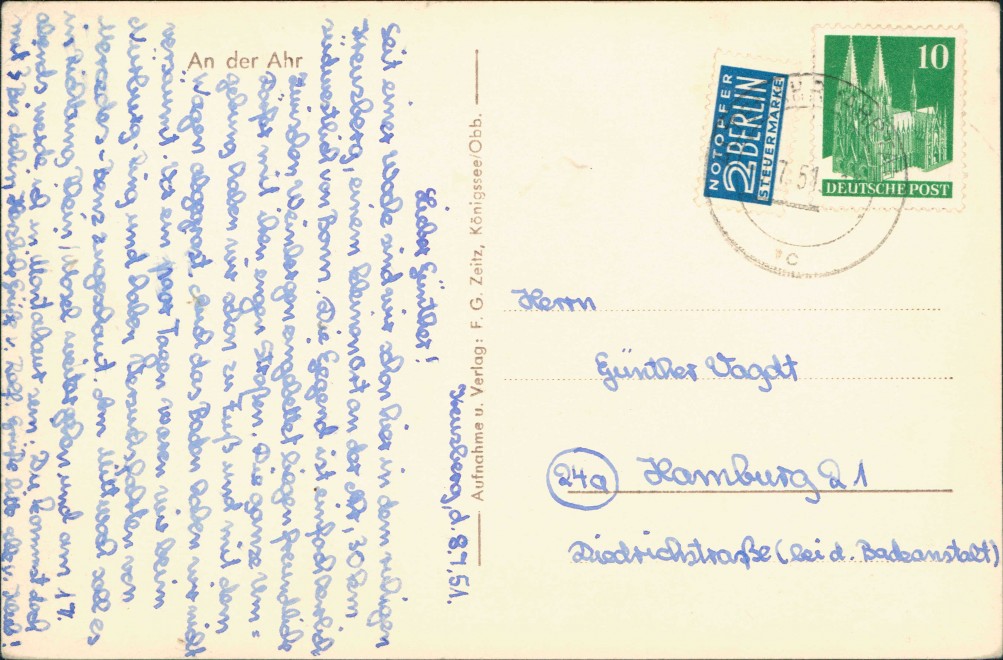 An der Ahr
Kreuzberg, d. 8.7.51.
Lieber Günther!
Seit einer Woche sind wir schon hier in dem ruhigen
Kreuzberg, einem kleinen Ort an der Ahr, 30 km
südwestlich von Bonn. Die Gegend ist einfach herrlich
Zwischen Weinbergen eingebettet liegen freundliche
Dörfer mit ihren engen Straßen. Die ganze Um=
gebung haben wir schon zu Fuß und mit dem
Wagen abgegrast. Auch das Baden haben wir nicht
versäumt. Vor ein paar Tagen waren wir beim
Nürburg-Ring und haben Versuchsfahrten von
Mercedes-Benz zugeschaut. Am Mittwoch soll es
in Richtung Rhein/Mosel weitergehen und am 17.
abends werde ich in Montabaur sein. Du kommst doch
mit? Bis dahin herzliche Grüße v. Rolf. Grüße bitte alle v.
Aufnahme u. Verlag: F. G. Zeitz, Königssee/Obb.
NOTOPFER
2 BERLIN
STEUERMARKE
10
DEUTSCHE POST
7. 51
c
Herrn
Günther Vagdt
24a Hamburg 21
Diedrichstraße (bei d. Badeanstalt)